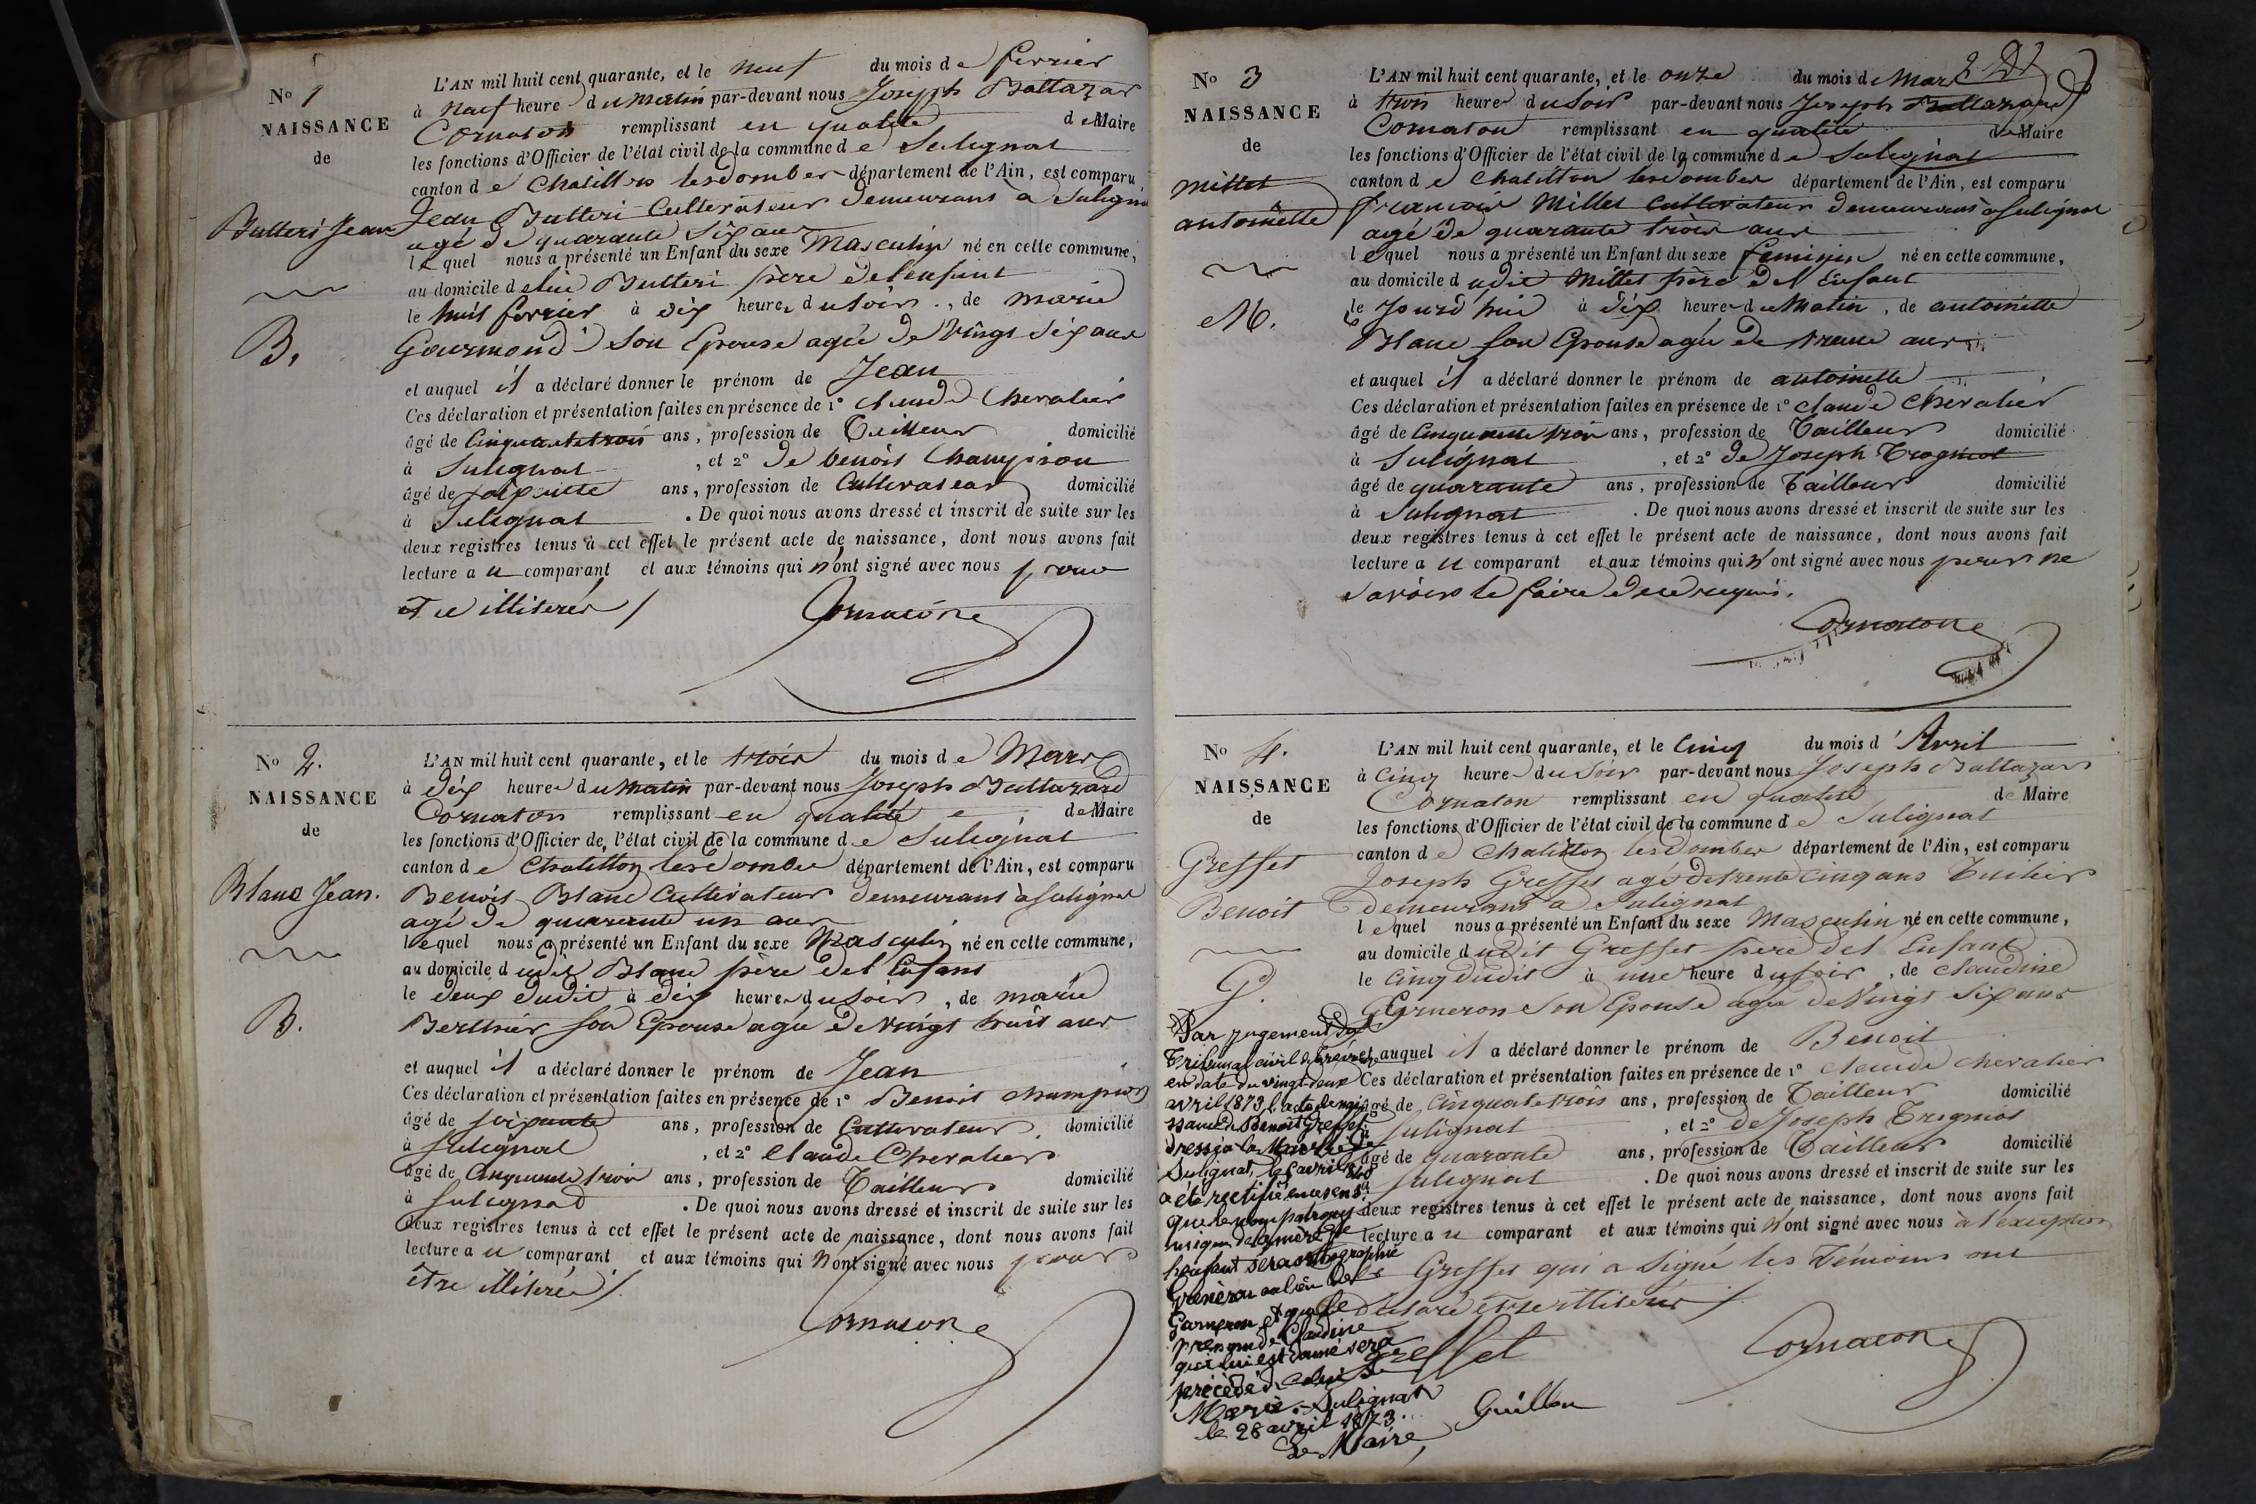 N° 1
NAISSANCE
de
Butteri Jean
B.
L'AN mil huit cent quarante, et le neuf du mois de fevrier
à neuf heure du matin par-devant nous Joseph Baltazar
Cornaton remplissant en qualité de Maire
les fonctions d'Officier de l'état civil de la commune de Sulignat
canton de Chatillon lesdombes département de l'Ain, est comparu
Jean Butteri Cultivateur demeurant à Sulignat
agé de quarante six ans
lequel nous a présenté un Enfant du sexe Masculin né en cette commune,
au domicile Butteri père de l'enfant
le huit fevrier à dix heures du soir, de marie
Gourmond son Epouse agée de vingt six ans
et auquel il a déclaré donner le prénom de Jean
Ces déclaration et présentation faites en présence de 1° claude Chevalier
âgé de Cinquantetrois ans, profession de Tailleur domicilié
à Sulignat, et 2° de benoit Champion
âgé de soixante ans, profession de Cultivateur domicilié
à Sulignat. De quoi nous avons dressé et inscrit de suite sur les
deux registres tenus à cet effet le présent acte de naissance, dont nous avons fait
lecture au comparant et aux témoins qui n'ont signé avec nous pour
illiterés
Cornaton
N° 2.
NAISSANCE
de
Blanc Jean.
B.
L'AN mil huit cent quarante, et le trois du mois de Mars
à dix heure du matin par-devant nous Joseph Baltazard
Cornaton remplissant en qualité de Maire
les fonctions d'Officier de l'état civil de la commune de Sulignat
canton de Chatillon lesdombes département de l'Ain, est comparu
Benoit Blanc Cultivateur demeurant à Sulignat
agé de quarante un ans
lequel nous a présenté un Enfant du sexe Masculin né en cette commune,
au domicile dudit Blanc père del Enfant
le deux dudit à dix heures du soir, de marie
Berthier son Epouse agée de vingt huit ans
et auquel il a déclaré donner le prénom de Jean
Ces déclaration et présentation faites en présence de 1° Benoit champion
âgé de soixante ans, profession de Cultivateur domicilié
à Sulignat, et 2° Claude Chevalier
âgé de Cinquante trois ans, profession de Tailleur domicilié
à Sulignat. De quoi nous avons dressé et inscrit de suite sur les
deux registres tenus à cet effet le présent acte de naissance, dont nous avons fait
lecture au comparant et aux témoins qui n'ont signé avec nous pour
être illiterés
Cornaton
N° 3
NAISSANCE
de
millet
antoinette
M.
L'AN mil huit cent quarante, et le onze du mois de Mars
à trois heure du soir par-devant nous Joseph Baltazard
Cornaton remplissant en qualité de Maire
les fonctions d'Officier de l'état civil de la commune de Sulignat
canton de Chatillon lesdombes département de l'Ain, est comparu
francois Millet cultivateur demeurant à Sulignat
agé de quarante trois ans
lequel nous a présenté un Enfant du sexe feminin né en cette commune,
au domicile dudit Millet père del Enfant
le jourd'hui à dix heures du Matin, de antoinette
Blanc son Epouse agée de trente ans
et auquel il a déclaré donner le prénom de antoinette
Ces déclaration et présentation faites en présence de 1° claude Chevalier
âgé de Cinquante trois ans, profession de Tailleur domicilié
à Sulignat, et 2° de Joseph
âgé de quarante ans, profession de Tailleur domicilié
à Sulignat. De quoi nous avons dressé et inscrit de suite sur les
deux registres tenus à cet effet le présent acte de naissance, dont nous avons fait
lecture au comparant et aux témoins qui n'ont signé avec nous pour ne
savoir le faire de ce requis.
Cornaton
N° 4.
NAISSANCE
de
Greffet
Benoit
G.
L'AN mil huit cent quarante, et le Cinq du mois d'Avril
à Cinq heure du soir par-devant nous Joseph Baltazar
Cornaton remplissant en qualité de Maire
les fonctions d'Officier de l'état civil de la commune de Sulignat
canton de Chatillon lesdombes département de l'Ain, est comparu
Joseph Greffet agé de trente Cinq ans Tuilier
demeurant à Sulignat
lequel nous a présenté un Enfant du sexe Masculin né en cette commune,
au domicile dudit Greffet père del Enfant
le Cinq dudit à une heure du soir, de claudine
son Epouse agée de Vingt Six ans
et auquel il a déclaré donner le prénom de Benoit
Ces déclaration et présentation faites en présence de 1° claude chevalier
âgé de Cinquantetrois ans, profession de Tailleur domicilié
à Sulignat, et 2° de Joseph
âgé de quarante ans, profession de Tailleur domicilié
à Sulignat. De quoi nous avons dressé et inscrit de suite sur les
deux registres tenus à cet effet le présent acte de naissance, dont nous avons fait
lecture au comparant et aux témoins qui n'ont signé avec nous à l'exception
de Greffet qui a signé les Témoins ont
déclaré être illiterés
greffet
Cornaton
Par jugement du
Tribunal civil de
en date du vingt-deux
avril 1873 l'acte de nai
ssance de Benoit Greffet
dressé à la Mairie de
Sulignat, le 5 avril 1840
a été rectifié en ce sens
que le nom patronymi
que de la mère de
l'enfant sera orthographié
au lieu de
et que le
prénom de Claudine
qui lui est donné sera
précédé de celui de
Marie. Sulignat
le 28 avril 1873.
Le Maire,
Guillon